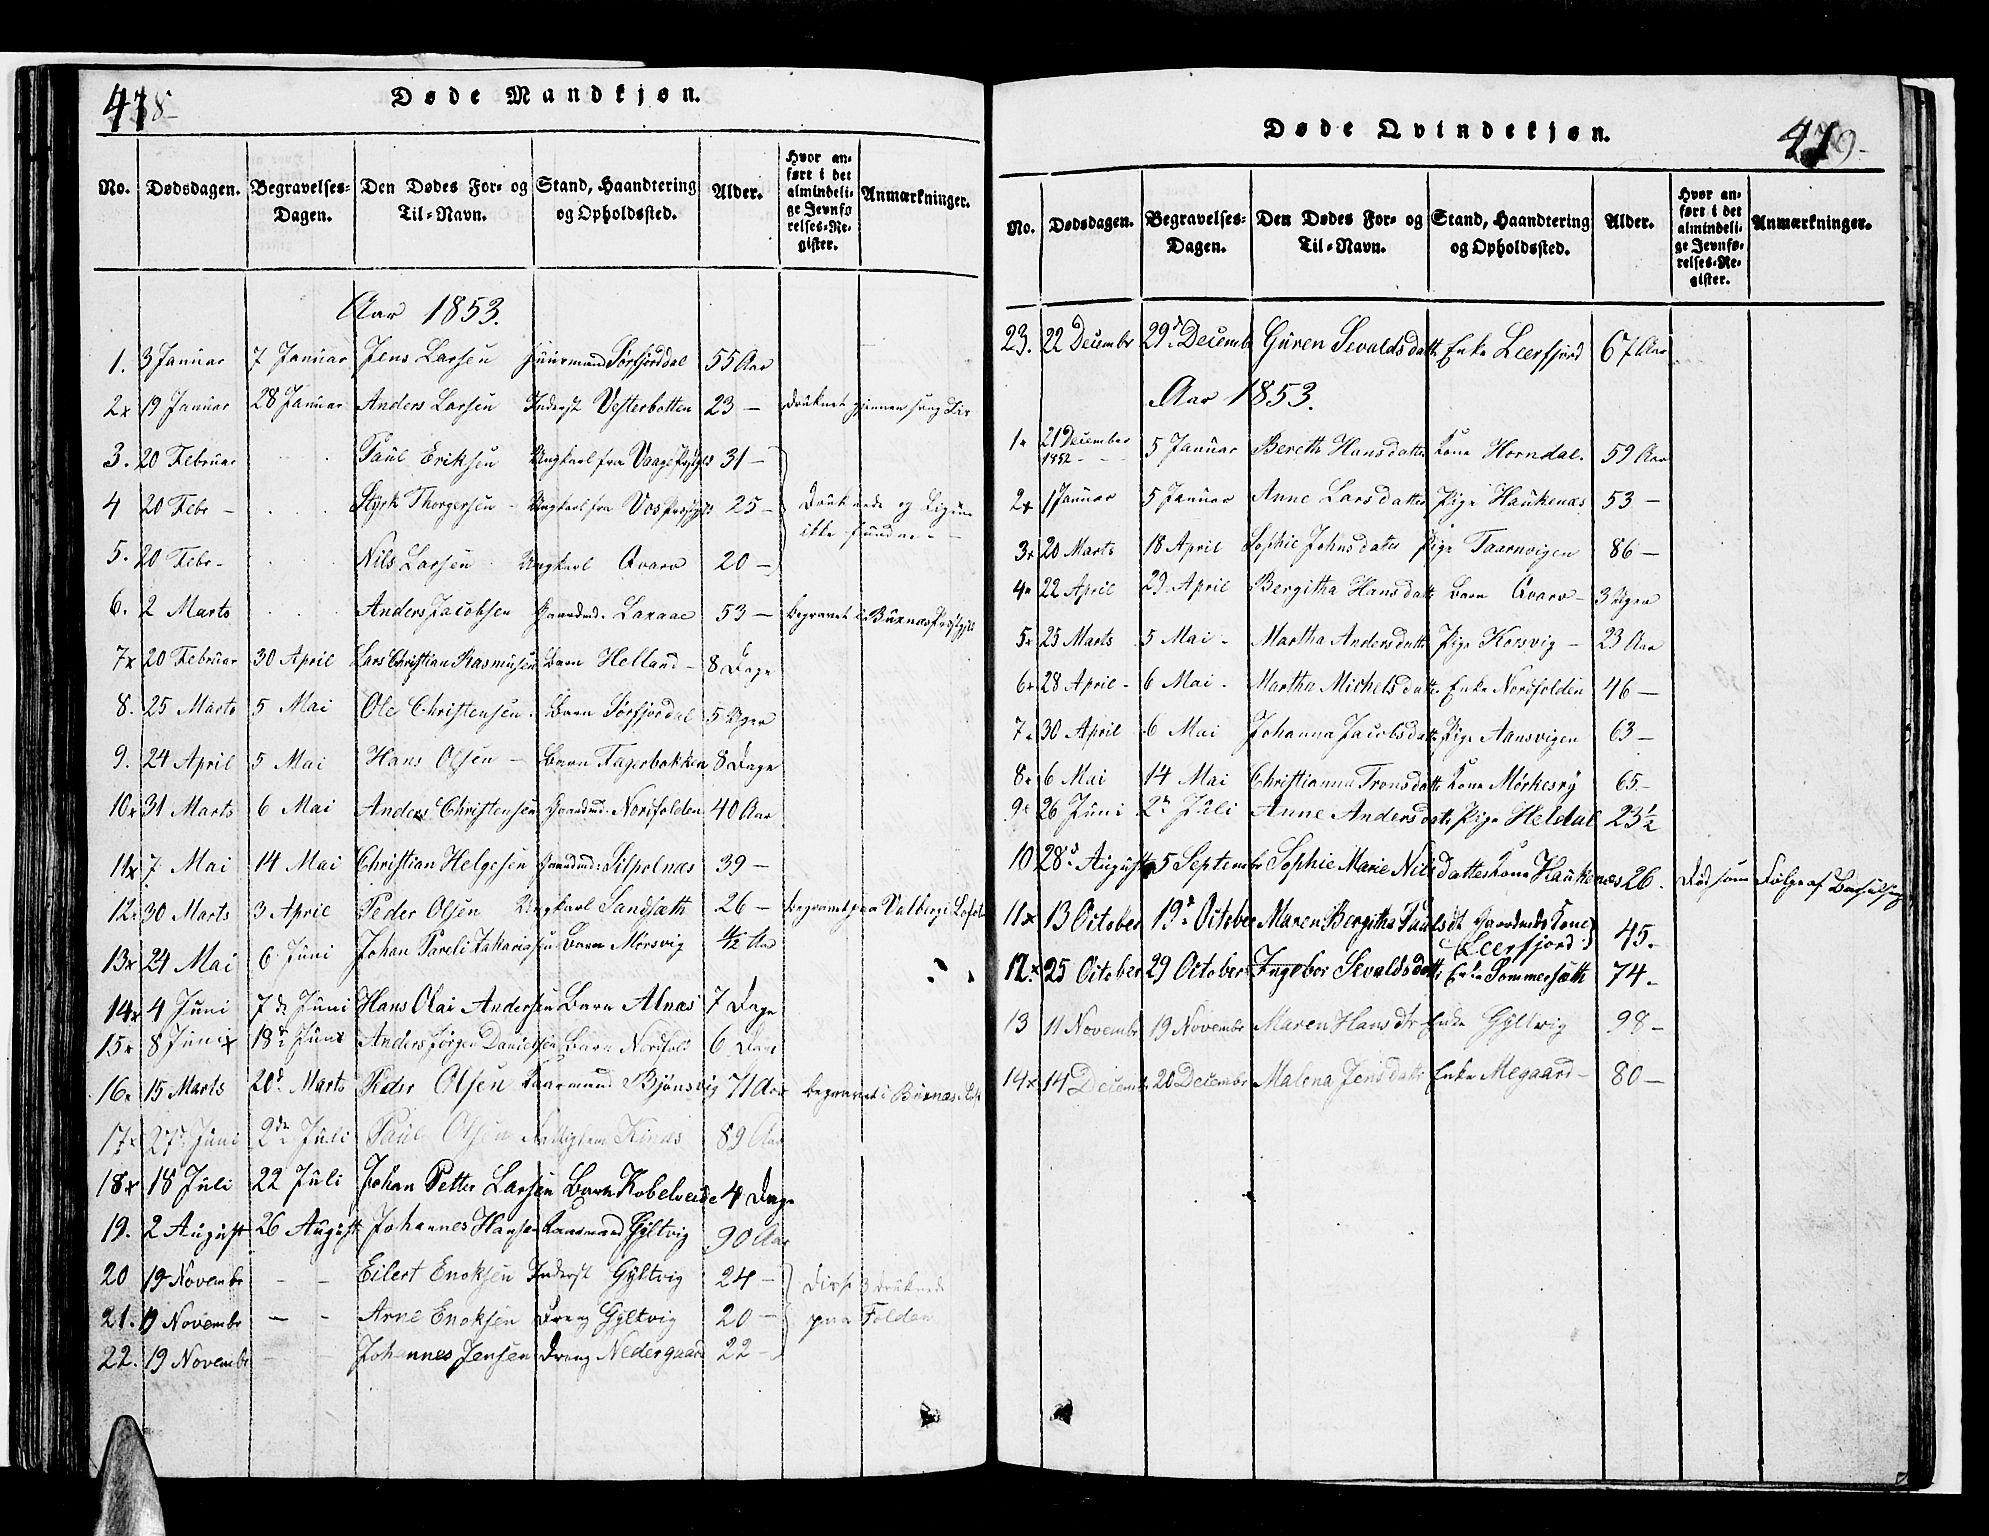 478
Døde Mandkjøn.
No. Dødsdagen. Begravelses-Dagen. Den Dødes For- og Til-Navn. Stand, Haandtering og Opholdssted. Alder. Hvor anført i det almindelige Jevnførelses-Register. Anmærkninger.
Aar 1853.
1. 3 Januar 7 Januar Jens Larsen Huusmand Sørfjorddal 55 Aar
2 19 Januar 28 Januar Anders Larsen Inderst Vesterbotten 23 —
3. 20 Februar Paul Eriksen Ungkarl fra Vaage 31 —
4 20 Febr - Styrk Thorgersen Ungkarl fra Vos 25 — Druknede og Ligene
ikke fundne -
5. 20 Febr - Nils Larsen Ungkarl Qvarv 20 —
6. 2 Marts Anders Jacobsen Gaardmd. Laxaae 53 — begravet i Buxnæs
7 20 Februar 30 April Lars Christian Rasmusen Barn Helland - 8 Dage
8. 25 Marts 5 Mai Ole Christensen Barn Sørfjordal 5 Uger
9. 24 April 5 Mai Hans Olsen — Barn Fagerbakken 8 Dage
10 31 Marts 6 Mai Anders Christensen Gaardmd. Nordfolden 40 Aar
11 7 Mai 14 Mai Christian Helgesen Gaardmd. Silpelnæs 39 —
12 30 Marts 3 April Peder Olsen Ungkarl Sandsæth 26 — begravet paa Valberg i Lofot
13 24 Mai 6 Juni Johan Pareli Zakariasen Barn Mørsvig
14 4 Juni 7 Juni Hans Olai Andersen Barn Alnæs 7 Dage
15 8 Juni 18 Juni Anders Jørgen Danielsen Barn Nordfold 6 Dage
16 15 Marts 20 Marts Peder Olsen Kaarmand Bjønsvig 71 Aar begravet i Buxnæs
17 27 Juni 2 Juli Paul Olsen 89 Aar
18 18 Juli 22 Juli Johan Petter Larsen Barn Kobelveide 4 Dage
19. 2 August 26 August Johannes Hansen Kaarmand Gyltvig 90 Aar
20 19 Novembr - - Eilert Enoksen Inderst Gyltvig 24 — Disse 3 druknede
21. 19 Novembr - - Arne Enoksen Dreng Gyltvig 20 — paa Folden
22. 19 Novembr - - Johannes Jensen Dreng Nedergaard 22 —
479
Døde Qvindekjøn.
No. Dødsdagen. Begravelses-Dagen. Den Dødes For- og Til-Navn. Stand, Haandtering og Opholdssted. Alder. Hvor anført i det almindelige Jevnførelses-Register. Anmærkninger.
23. 22 Decembr 29 Decembr Guren Sevaldsdatt Enke Leerfjord 67 Aar
Aar 1853.
1 21 December 1852 5 Januar Berith Hansdatter Kone Horndal. 59 Aar
2 1 Januar 5 Januar Anne Larsdatter Pige Haukenæs 53 —
3 20 Marts 18 April Sophie Johnsdatter Pige Taarnvigen 86 —
4 22 April 29 April Bergitha Hansdatt Barn Qvarv 3 Uger
5 25 Marts 5 Mai - Martha Andersdatt Pige Korsvig — 23 Aar
6 28 April - 6 Mai - Martha Michelsdatt Enke Nordfolden 46 —
7 30 April 6 Mai Johanna Jacobsdatt Pige Aansvigen 63 —
8 6 Mai 14 Mai Christianna Tronsdatt Kone Mørkesry 65 —
9 26 Juni 2 Juli Anne Andersdatt Pige Heldal 23 ½
10 28 August 5 Septembr Sophie Marie Nilsdatter Kone Haukenæs 26. Død som Følge af Barselseng
11 13 October 19 October Maren Bergitha Paulsdt Gaardmds Kone
(Leerfjord) 45.
12 25 October 29 October Ingebor Sevaldsdatt Enke Sommersæth 74.
13 11 Novembr 19 Novembr Maren Hansdtr Enke Gyltvig 98 —
14 14 Decembr 20 Decembr Malena Jensdatr Enke Megaard — 80 —